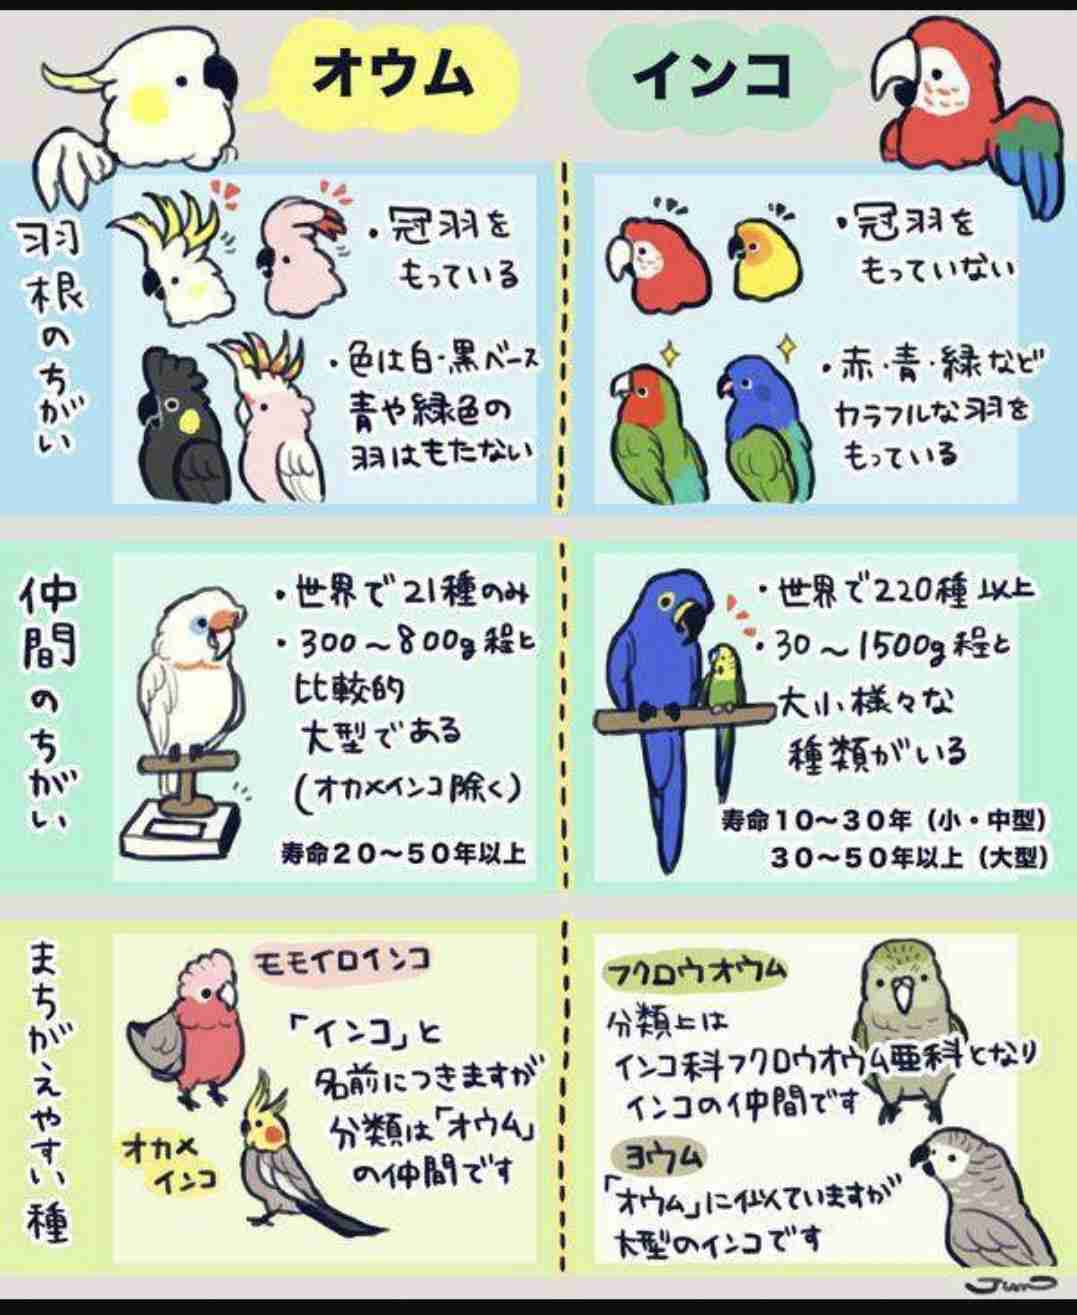 オウム
インコ
羽根のちがい
・冠羽を
もっている
・色は白・黒ベース
青や緑色の
羽はもたない
・冠羽を
もっていない
・赤・青・緑など
カラフルな羽を
もっている
仲間のちがい
・世界で21種のみ
・300～800g程と
比較的
大型である
(オカメインコ除く)
寿命20～50年以上
・世界で220種以上
・30～1500g程と
大小様々な
種類がいる
寿命10～30年（小・中型）
30～50年以上（大型）
まちがえやすい種
モモイロインコ
「インコ」と
名前につきますが
分類は「オウム」
の仲間です
オカメ
インコ
フクロウオウム
分類上は
インコ科フクロウオウム亜科となり
インコの仲間です
ヨウム
「オウム」に似ていますが
大型のインコです